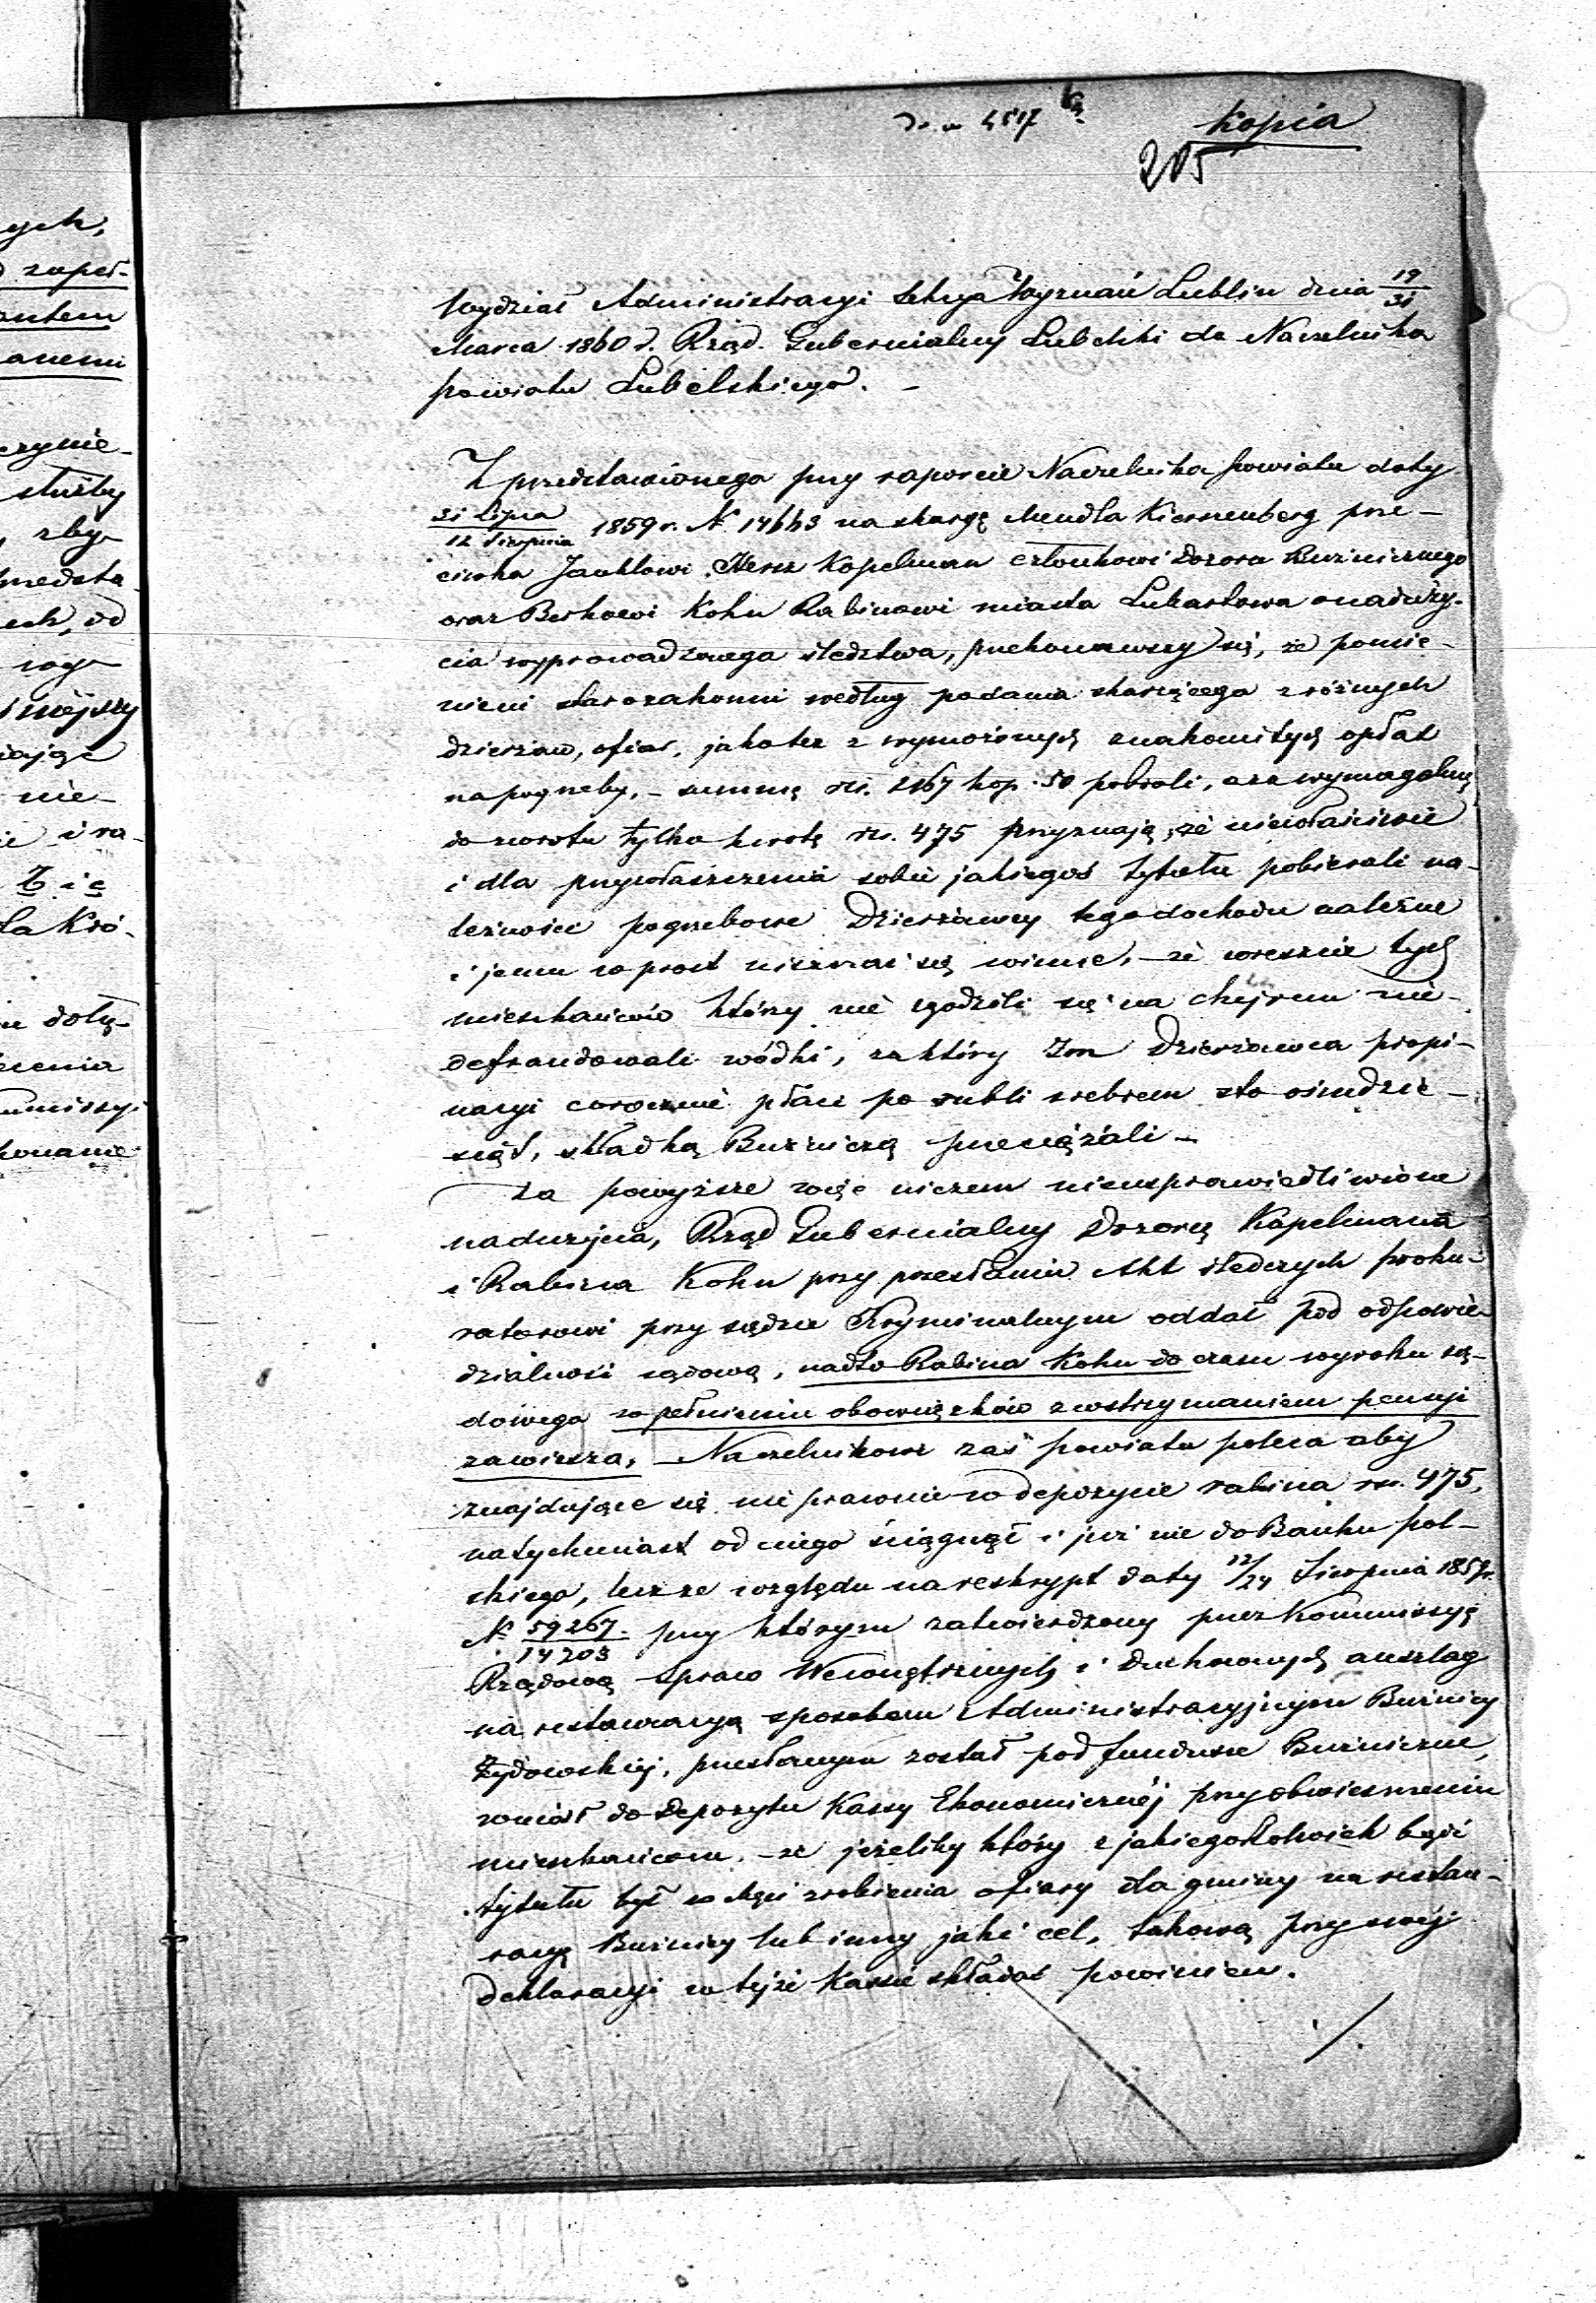 do n 4517
Kopia
205
Wydział Administracyi Sekcya Wyznań Lublin dnia 19/31
Marca 1860 r. Rząd Gubernialny Lubelski do Naczelnika
powiatu Lubelskiego. –
Z przedstawionego przy raporcie Naczelnika powiatu daty
31 Lipca/12 Sierpnia 1859 r. N 14663 na skargę Mendla Kiernenberg prze-
ciwko Jankłowi Hersz Kopelman członkowi Dozoru Bużnicznego
oraz Berkowi Kohn Rabinowi miasta Lubartowa o naduży-
cia wyprowadzonego śledztwa, przekonawszy się, że pomie-
nieni starozakonni według podania skarżącego z różnych
dzierżaw, ofiar, jakoteż z wymożonych znakomitych opłat
na pogrzeby, – summę rs. 2167 kop. 50 pobrali, a za wymagalną
do zwrotu tylko kwotę rs. 475 przyznają, że niewłaściwie
i dla przywłaszczenia sobie jakiegoś tytułu pobierali na-
leżności pogrzebowe Dzierżawcy tego dochodu należne
i jemu wprost uiszczać się winne, – że wreszcie tych
mieszkańców którzy nie zgodzili się na chejrem nie-
defraudowali wódki, za który Im Dzierżawca propi-
nacyi corocznie płaci po rubli srebrem sto ośmdzie-
siąt, składką Bużniczą przeciążali –
Za powyższe więc niczem nieusprawiedliwione
nadużycia, Rząd Gubernialny Dozorcę Kopelmana
i Rabina Kohn przy przesłaniu Akt śledczych proku-
ratorowi przy sądzie Kryminalnym oddał pod odpowie-
dzialność sądową, nadto Rabina Kohn do czasu wyroku są-
dowego w pełnieniu obowiązków z wstrzymaniem pensyi
zawiesza, Naczelnikowi zaś powiatu poleca aby
znajdujące się nie prawnie w depozycie rabina rs. 475,
natychmiast od niego ściągnął i już nie do Banku pol-
skiego, lecz ze względu na reskrypt daty 12/24 Sierpnia 1859 r.
N 59267/14203 przy którym zatwierdzony przez Kommissyę
Rządową Spraw Wewnętrznych i Duchownych anszlag
na restauracyą sposobem Administracyjnym Bużnicy
Żydowskiej, przesłanym został pod fundusze Bużniczne,
wniósł do depozytu Kassy Ekonomicznej przy obwieszczeniu
mieszkańcom, – że jeżeliby który z jakiegokolwiek bądź
tytułu był w chęci zrobienia ofiary dla gminy na restau-
racyę Bużnicy lub inny jaki cel, takową przy swej
deklaracyi w tejże Kassie składać powinien.
./.